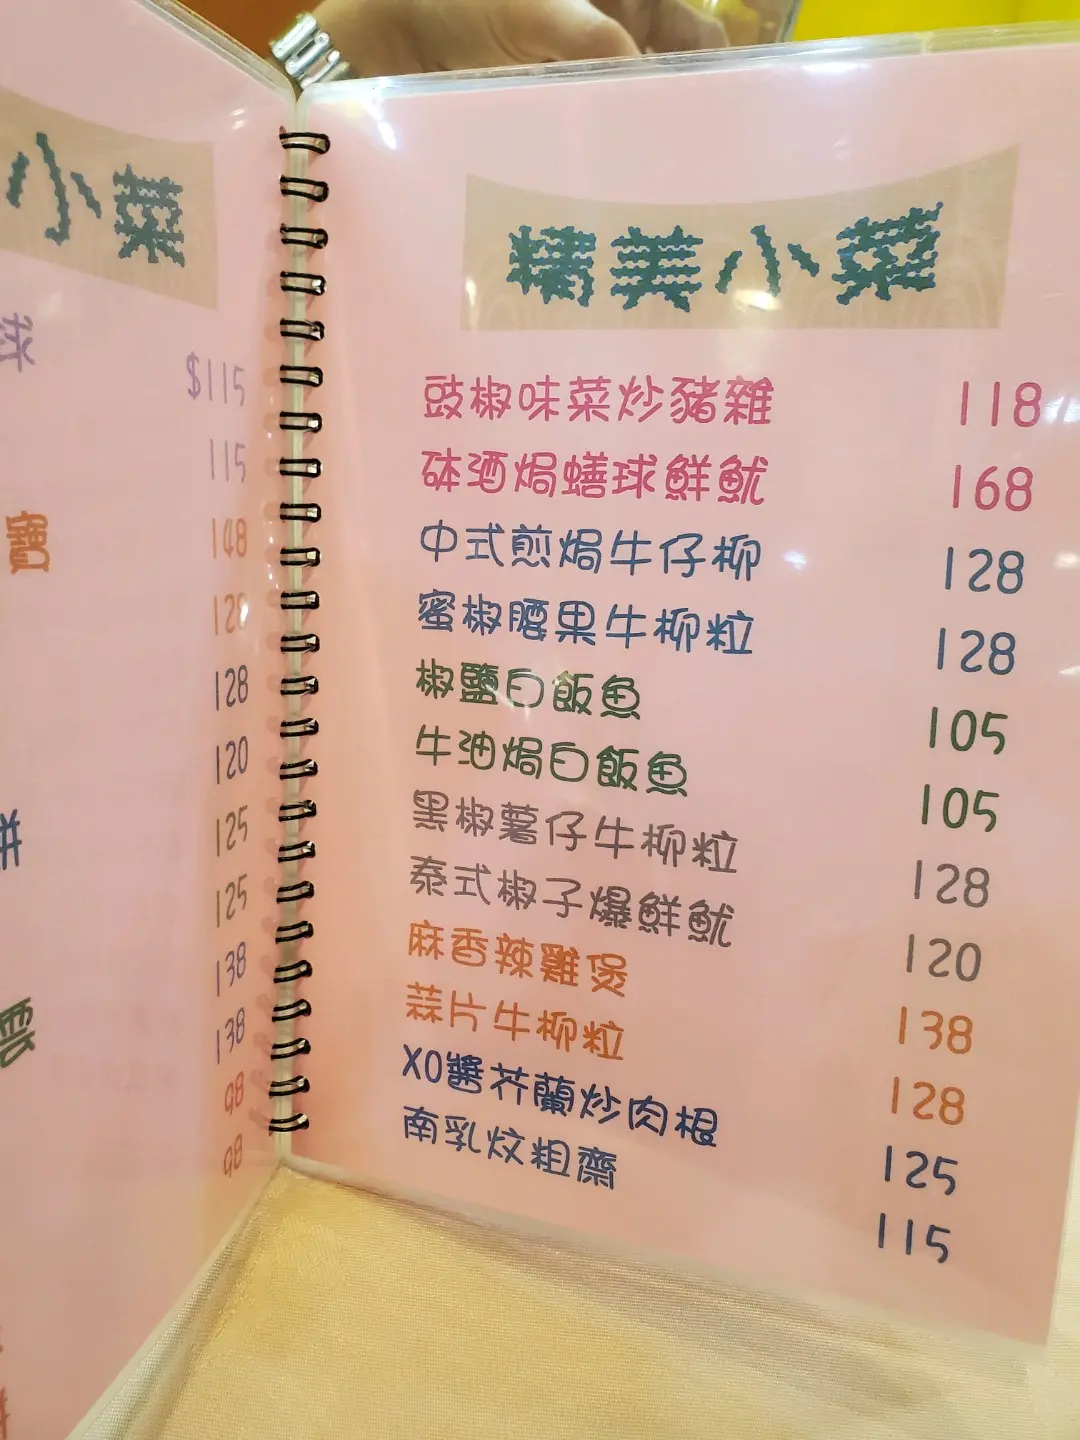 小菜
球 $115
115
寶 148
128
128
120
125
餅 125
138
138
雲 98
98
精美小菜
豉椒味菜炒豬雜 118
砵酒焗鱔球鮮魷 168
中式煎焗牛仔柳 128
蜜椒腰果牛柳粒 128
椒鹽白飯魚 105
牛油焗白飯魚 105
黑椒薯仔牛柳粒 128
泰式椒子爆鮮魷 120
麻香辣雞煲 138
蒜片牛柳粒 128
XO醬芥蘭炒肉根 125
南乳炆粗齋 115